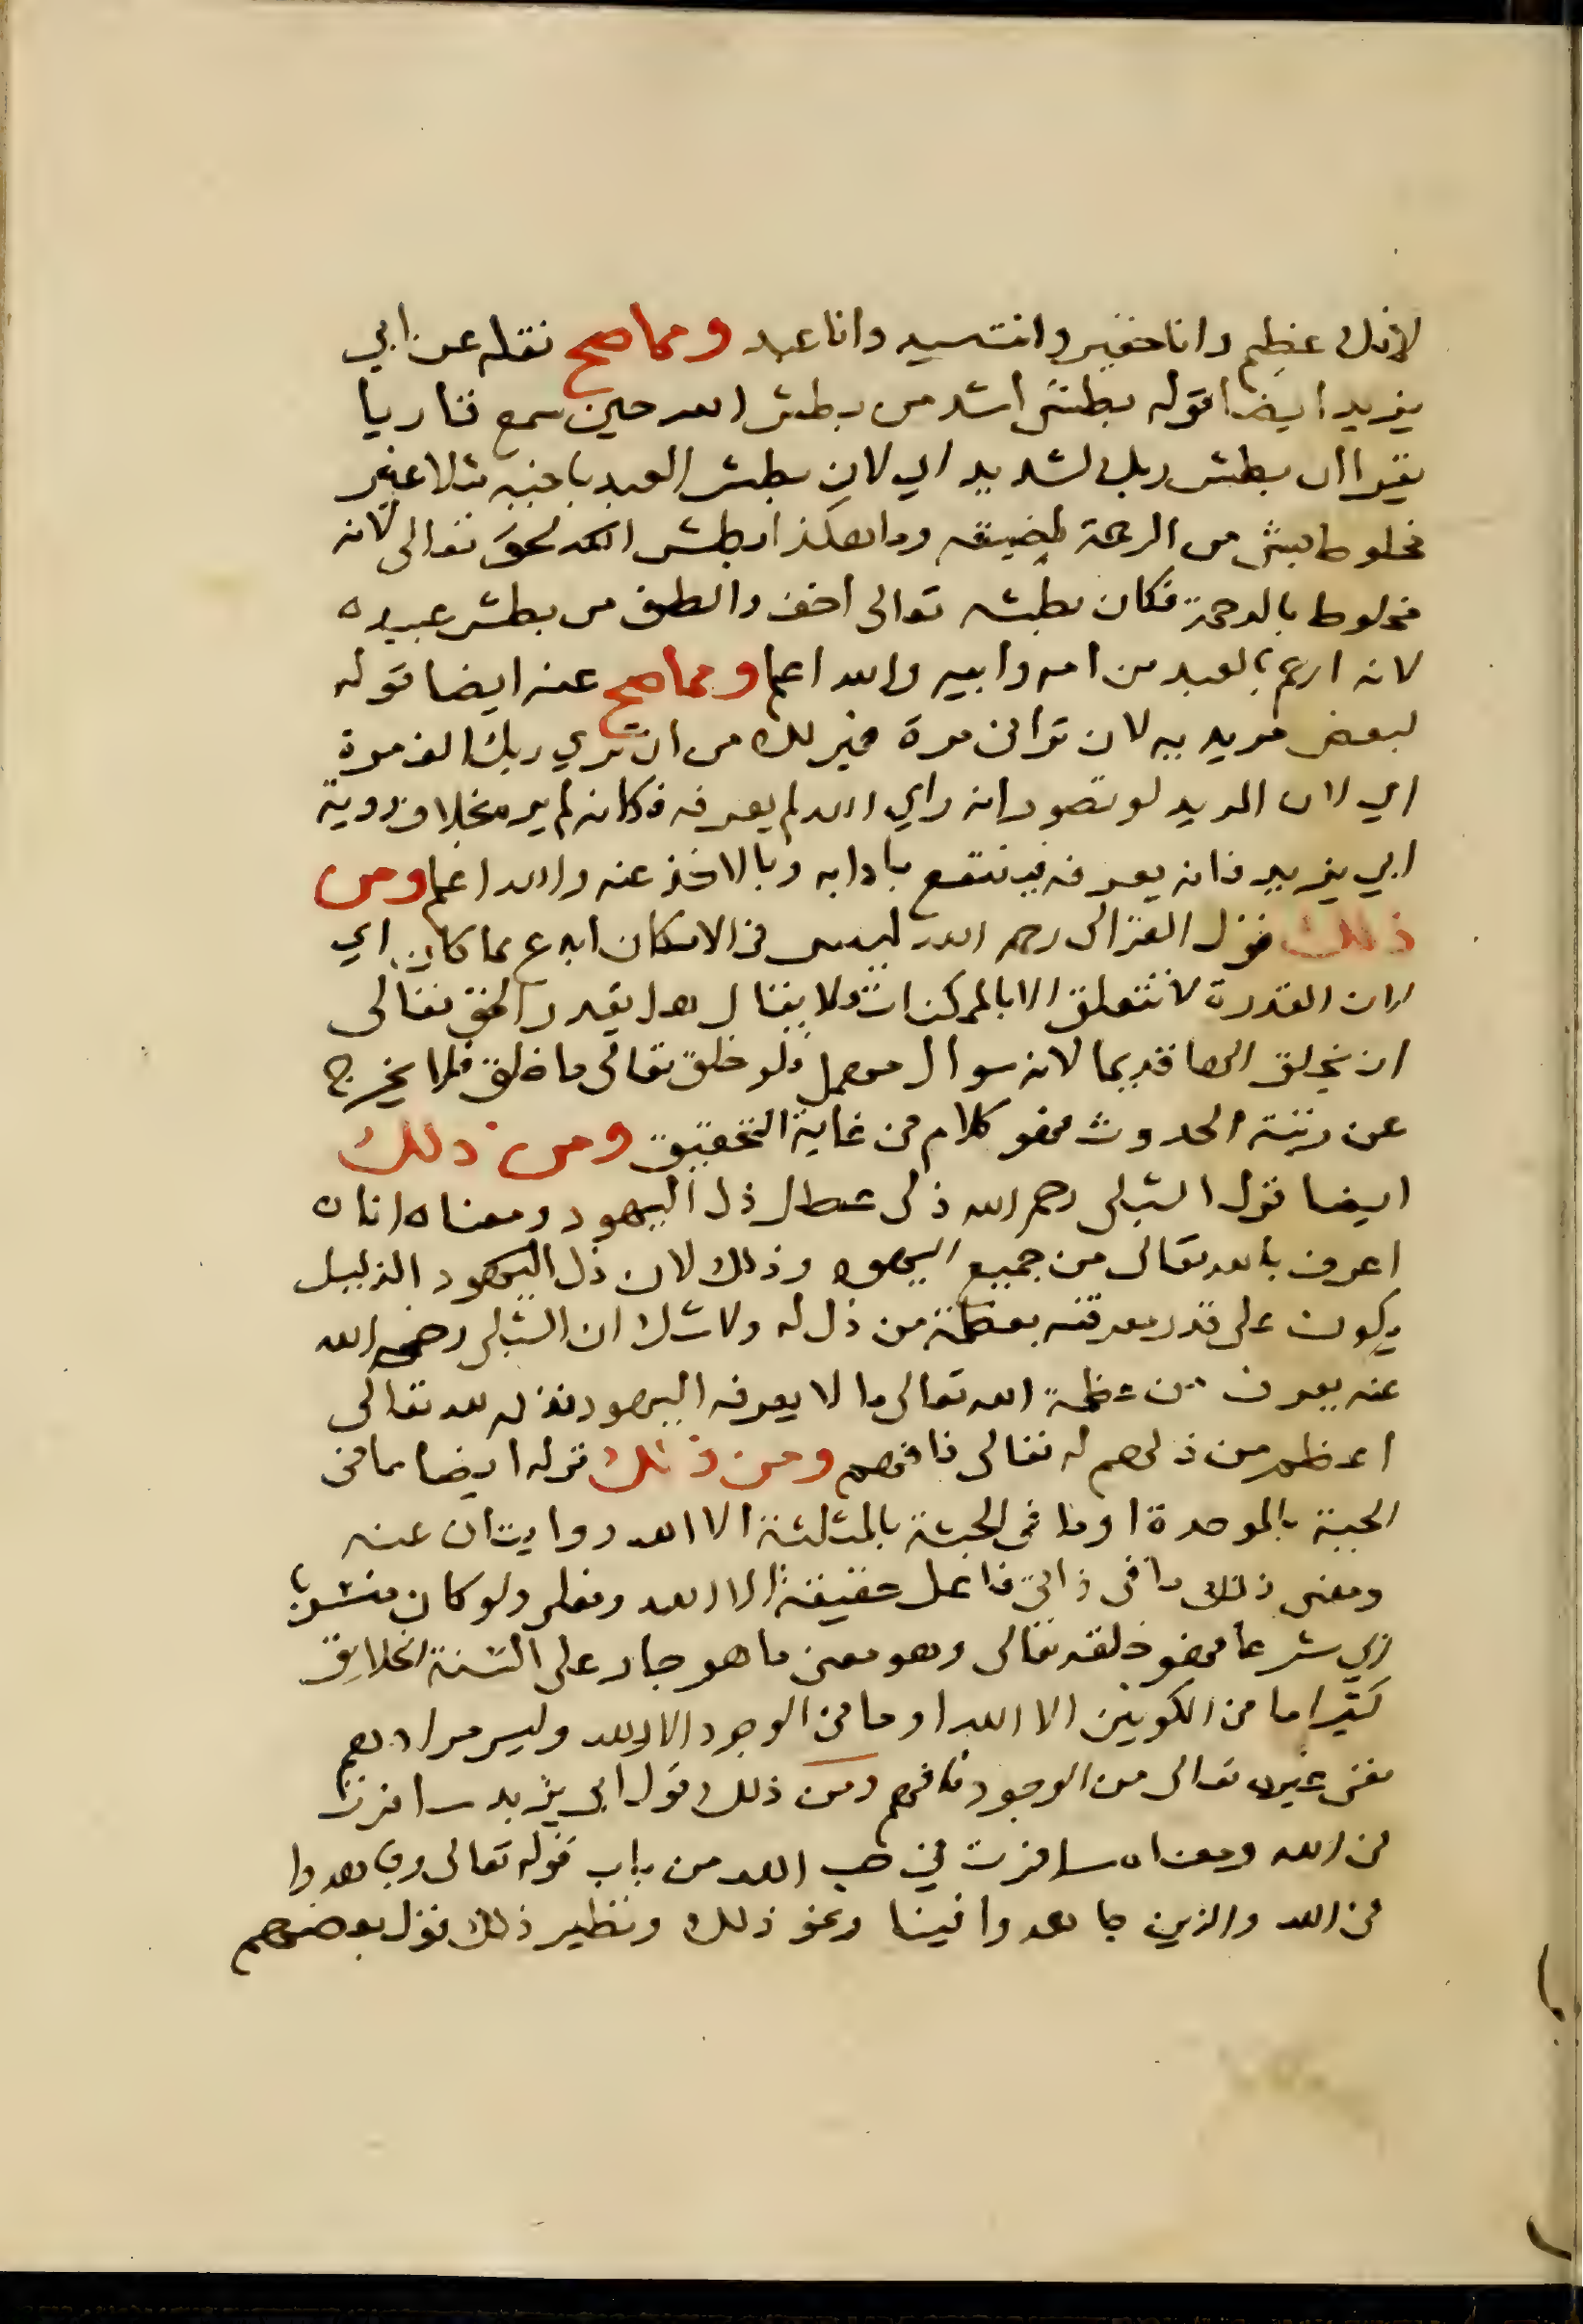 لانك عظيم وانا حقير وانت سيد وانا عبد ومما صح نقله عن ابي
يزيد ايضا قوله بطشي اشد من بطش الله حين سمع قاريا
يقرا ان بطش ربك لشديد اي لان بطش العبد باخيه مثلا غير
مخلوط بشي من الرحمة لضيقه وما هكذا بطش الحق تعالى لانه
مخلوط بالرحمة فكان بطشه تعالى اخف والطف من بطش عبيده
لانه ارحم بالعبد من امه وابيه والله اعلم ومما صح عنه ايضا قوله
لبعض مريديه لان تراني مرة خير لك من ان تري ربك الف مرة
اي لان المريد لو تصور انه راي الله لم يعرفه فكانه لم ير بخلاف روية
ابي يزيد فانه يعرفه فينتفع بادابه وبالاخذ عنه والله اعلم ومن
ذلك قول الغزالى رحمه الله ليس في الامكان ابدع مما كان اي
لان القدرة لا تتعلق الا بالممكنات ولا يقال هل يقدر الحق تعالى
ان يخلق الها قديما لانه سوال مهمل فلو خلق تعالى ما خلق فلا يخرج
عن رتبة الحدوث فهو كلام في غاية التحقيق ومن ذلك
ايضا قول الشبلى رحمه الله ذلى عطل ذل اليهود ومعناه انا
اعرف بالله تعالى من جميع اليهود وذلك لان ذل اليهود الذليل
يكون على قدر معرفته بعظمة من ذل له ولا شك ان الشبلى رضى الله
عنه يعرف من عظمة الله تعالى ما لا يعرفه اليهود فذله لله تعالى
اعظم من ذلهم له تعالى فافهم ومن ذلك قوله ايضا ما في
الجبة بالموحدة او ما في الجثة بالمثلثة الا الله روايتان عنه
ومعنى ذلك ما فى ذاتي فاعل حقيقة الا الله وفعلى ولو كان منسوبا
لي شرعا فهو خلقه تعالى وهو معنى ما هو جار على السنة الخلايق
كثيرا ما في الكونين الا الله او ما في الوجود الا الله وليس مرادهم
نفي غيره تعالى من الوجود فافهم ومن ذلك قول ابي يزيد سافرت
في الله ومعناه سافرت في حب الله من باب قوله تعالى وجاهدوا
في الله والذين جاهدوا فينا ونحو ذلك ونظير ذلك قول بعضهم